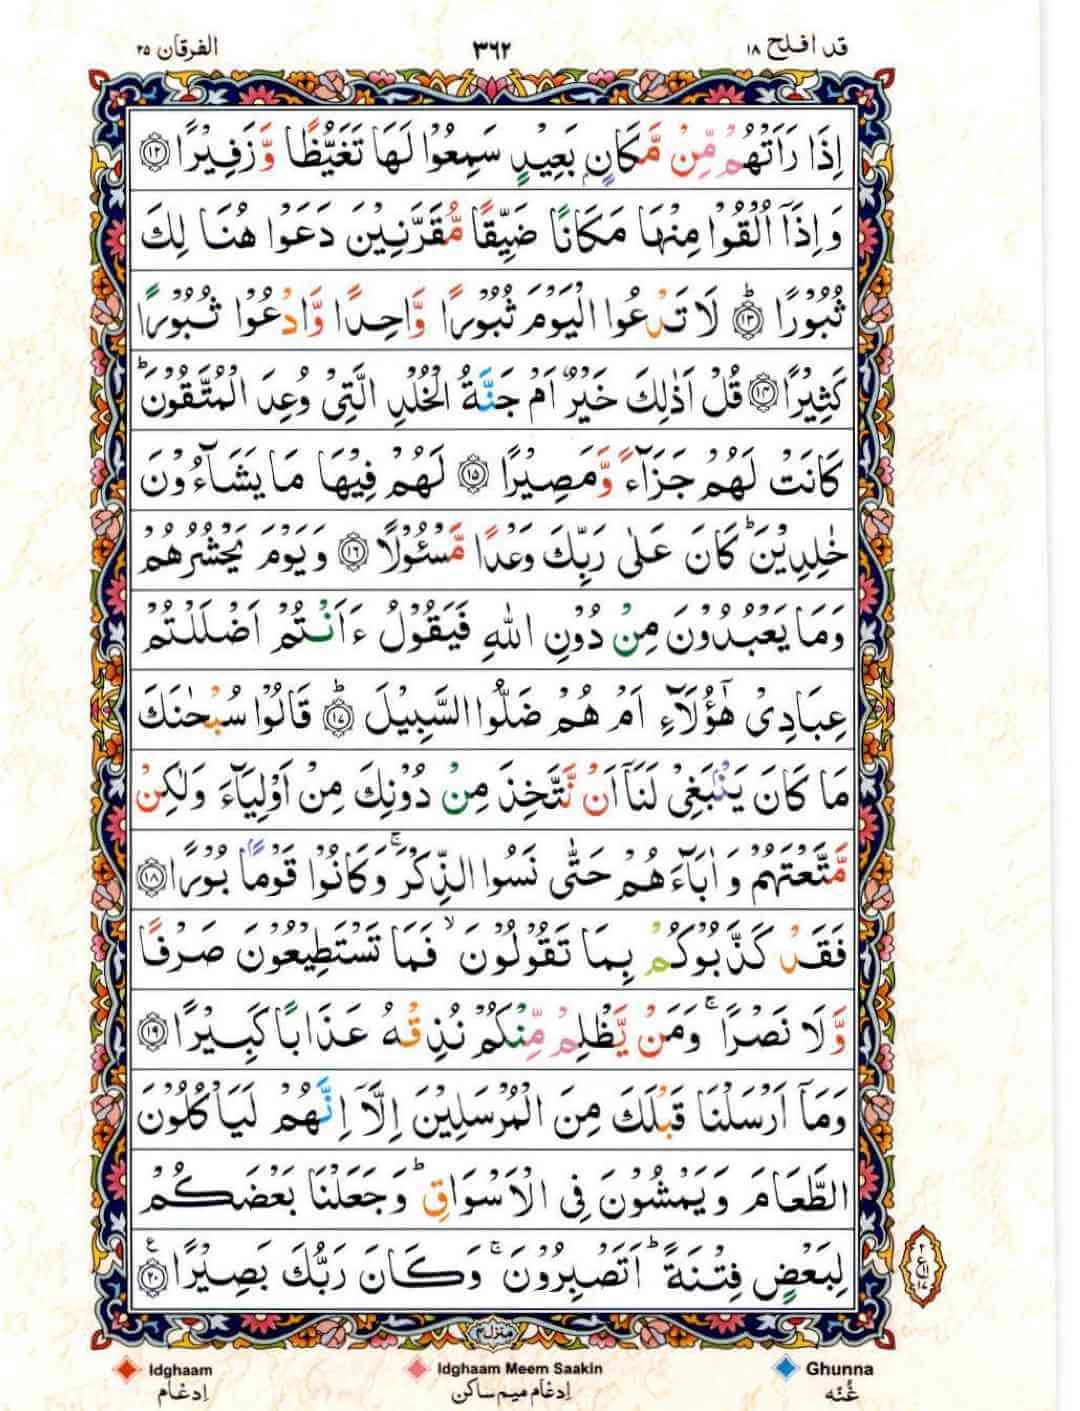 قد افلح ۱۸ ۳۶۲ الفرقان ۲۵
اِذَا رَاَتْهُمْ مِّنْ مَّكَانٍۭ بَعِیْدٍ سَمِعُوْا لَهَا تَغَیُّظًا وَّ زَفِیْرًا ﴿۱۲﴾
وَ اِذَاۤ اُلْقُوْا مِنْهَا مَكَانًا ضَیِّقًا مُّقَرَّنِیْنَ دَعَوْا هُنَا لِكَ
ثُبُوْرًا ؕ﴿۱۳﴾ لَا تَدْعُوا الْیَوْمَ ثُبُوْرًا وَّاحِدًا وَّادْعُوْا ثُبُوْرًا
كَثِیْرًا ﴿۱۴﴾ قُلْ اَذٰلِكَ خَیْرٌ اَمْ جَنَّةُ الْخُلْدِ الَّتِیْ وُعِدَ الْمُتَّقُوْنَ ؕ
كَانَتْ لَهُمْ جَزَآءً وَّ مَصِیْرًا ﴿۱۵﴾ لَهُمْ فِیْهَا مَا یَشَآءُوْنَ
خٰلِدِیْنَ ؕ كَانَ عَلٰی رَبِّكَ وَعْدًا مَّسْـُٔوْلًا ﴿۱۶﴾ وَ یَوْمَ یَحْشُرُهُمْ
وَ مَا یَعْبُدُوْنَ مِنْ دُوْنِ اللّٰهِ فَیَقُوْلُ ءَاَنْتُمْ اَضْلَلْتُمْ
عِبَادِیْ هٰۤؤُلَآءِ اَمْ هُمْ ضَلُّوا السَّبِیْلَ ؕ﴿۱۷﴾ قَالُوْا سُبْحٰنَكَ
مَا كَانَ یَنْۢبَغِیْ لَنَاۤ اَنْ نَّتَّخِذَ مِنْ دُوْنِكَ مِنْ اَوْلِیَآءَ وَلٰكِنْ
مَّتَّعْتَهُمْ وَ اٰبَآءَهُمْ حَتّٰی نَسُوا الذِّكْرَ ۚ وَ كَانُوْا قَوْمًۢا بُوْرًا ﴿۱۸﴾
فَقَدْ كَذَّبُوْكُمْ بِمَا تَقُوْلُوْنَ ۙ فَمَا تَسْتَطِیْعُوْنَ صَرْفًا
وَّ لَا نَصْرًا ۚ وَمَنْ یَّظْلِمْ مِّنْكُمْ نُذِقْهُ عَذَابًا كَبِیْرًا ﴿۱۹﴾
وَمَاۤ اَرْسَلْنَا قَبْلَكَ مِنَ الْمُرْسَلِیْنَ اِلَّاۤ اِنَّهُمْ لَیَاْكُلُوْنَ
الطَّعَامَ وَ یَمْشُوْنَ فِی الْاَسْوَاقِ ؕ وَ جَعَلْنَا بَعْضَكُمْ
لِبَعْضٍ فِتْنَةً ؕ اَتَصْبِرُوْنَ ۚ وَ كَانَ رَبُّكَ بَصِیْرًا ﴿۲۰﴾ ع
۲ ع ۱۱ ۱۷
منزل ۴
Idghaam Idghaam Meem Saakin Ghunna
اِدغام اِدغام میم ساکن غُنّه